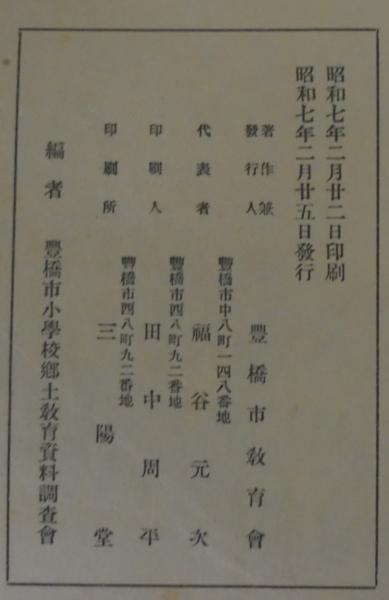 昭和七年二月廿二日印刷
昭和七年二月廿五日發行
著作兼
發行人
豐橋市敎育會
豐橋市中八町一四八番地
代表者
福谷元次
豐橋市西八町九二番地
印刷人
田中周平
豐橋市西八町九二番地
印刷所
三陽堂
編者
豐橋市小學校鄕土敎育資料調查會